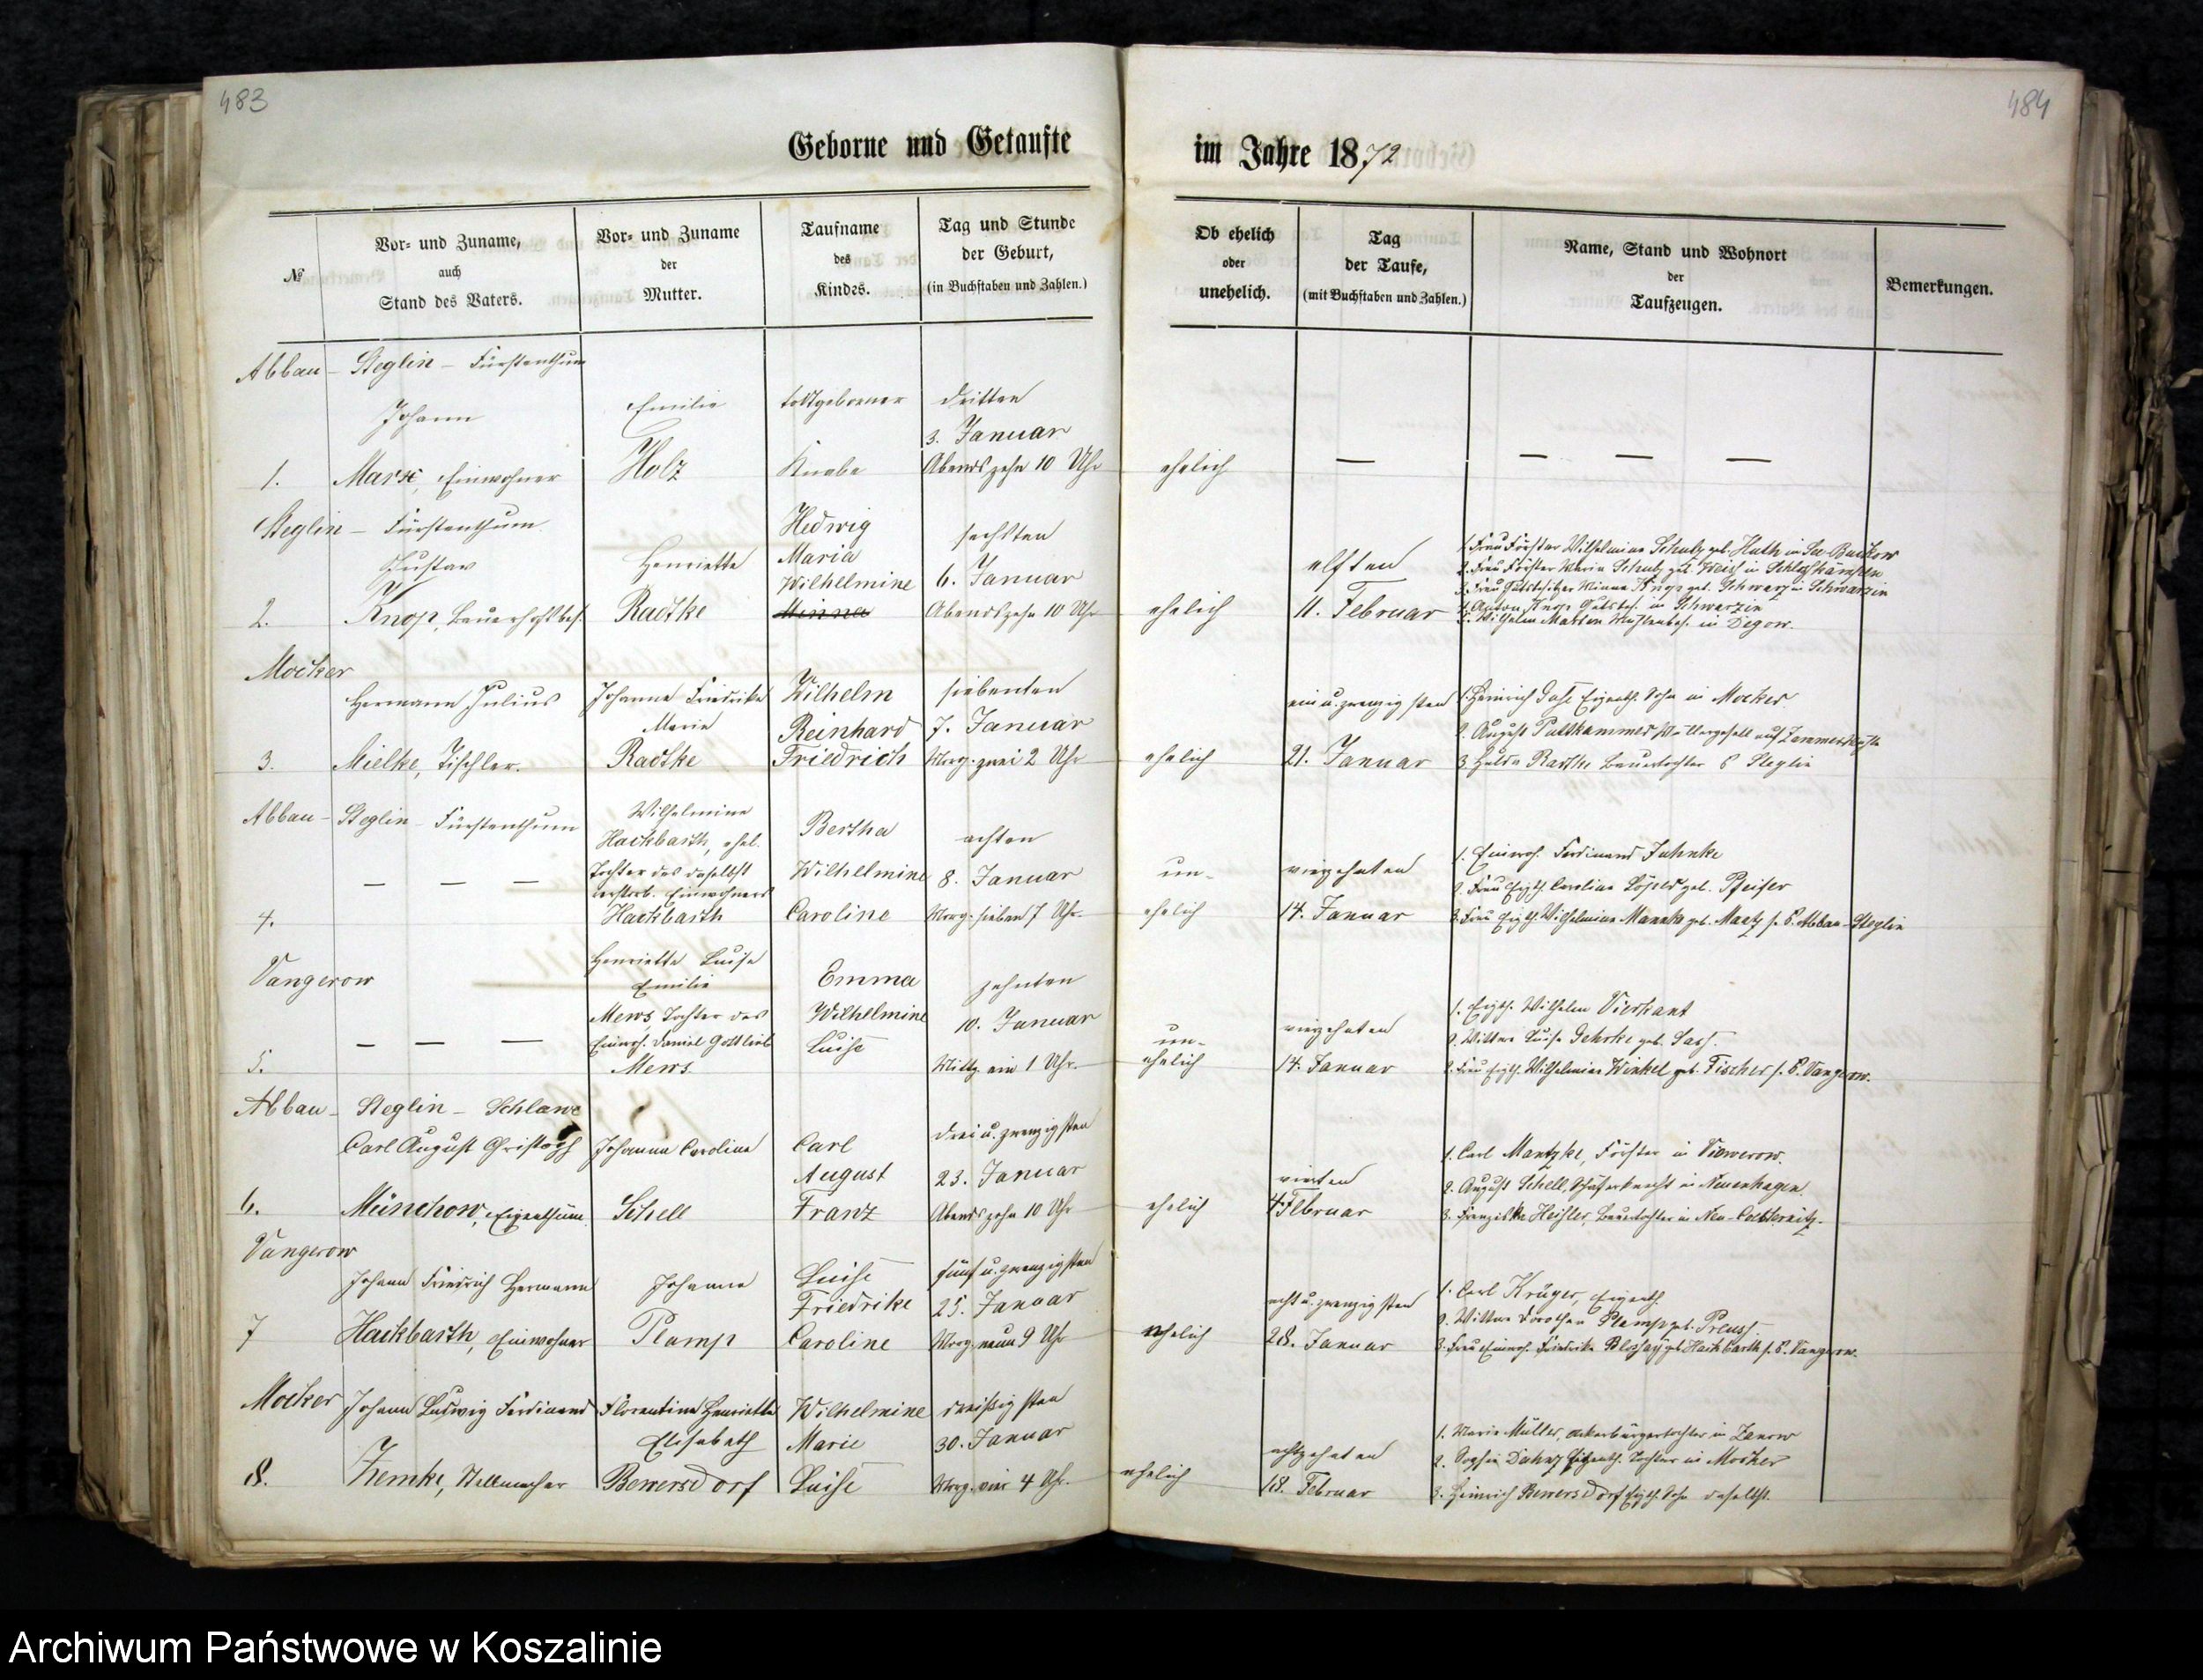 483
484
Geborne und Getaufte
im Jahre 1872
№
Vor- und Zuname,
auch
Stand des Vaters.
Vor- und Zuname
der
Mutter.
Taufname
des
Kindes.
Tag und Stunde
der Geburt,
(in Buchstaben und Zahlen.)
Ob ehelich
oder
unehelich.
Tag
der Taufe,
(mit Buchstaben und Zahlen.)
Name, Stand und Wohnort
der
Taufzeugen.
Bemerkungen.
Abbau – Steglin – Fürstenthum
Johann
Marx, Einwohner
1.
Emilie
Holz
todtgeborner
Knabe
dritten
3. Januar
Abends zehn 10 Uhr
ehelich
— — — —
Steglin – Fürstenthum
Gustav
2.
Knop, Bauerhofsbes.
Henriette
Radtke
Hedwig
Maria
Wilhelmine
Minna
sechsten
6. Januar
Abends zehn 10 Uhr
ehelich
elften
11. Februar
1. Frau Förster Wilhelmine Schulz geb. Huth in See-Buckow
2. Frau Förster Maria Schulz geb. Weiss in
3. Frau Gutsbesitzer Minna Knop geb. Schwarz in Schwarzin
4. Anton Knop Gutsbes. in Schwarzin
5. Wilhelm Marten Mühlenbes. in Degow.
Mocker
Hermann Julius
3.
Mielke, Tischler.
Johanne Friedrike
Marie
Radtke
Wilhelm
Reinhard
Friedrich
siebenten
7. Januar
Morg. zwei 2 Uhr
ehelich
ein u. zwanzigsten
21. Januar
1. Heinrich Eigenth. Sohn in Mocker
2. August Puttkammer auf
3. Hulda Radtke Bauertochter Steglin
Abbau – Steglin – Fürstenthum
— — —
4.
Wilhelmine
Hackbarth, ehel.
Tochter des daselbst
verstorb. Einwohners
Hackbarth
Bertha
Wilhelmine
Caroline
achten
8. Januar
Morg. sieben 7 Uhr.
un-
ehelich
vierzehnten
14. Januar
1. Einwoh. Ferdinand Jahnke
2. Frau Eigth. Caroline geb. Pfeifer
3. Frau Eigth. Wilhelmine geb. Mantz s. P. Abbau-Steglin
Vangerow
— — —
5.
Henriette Luise
Emilie
Mews, Tochter des
Einwoh. Daniel Gottlieb
Mews.
Emma
Wilhelmine
Luise
zehnten
10. Januar
Mittg. ein 1 Uhr.
un-
ehelich
vierzehnten
14. Januar
1. Eigth. Wilhelm Vierkant
2. Wittwe Luise Gehrke geb.
3. Frau Eigth. Wilhelmine Winkel geb. Fischer s. P. Vangerow.
Abbau – Steglin – Schlawe
Carl August Christoph
6.
Münchow, Eigenthüm.
Johanne Caroline
Schell
Carl
August
Franz
drei u. zwanzigsten
23. Januar
Abends zehn 10 Uhr
ehelich
vierten
4. Februar
1. Carl Mantzke, Förster in
2. August Schell, Schäferknecht in Neuenhagen.
3. Franziska Heisler, Bauertochter in
Vangerow
Johann Friedrich Hermann
7
Hackbarth, Einwohner
Johanne
Plamp
Luise
Friedrike
Caroline
fünf u. zwanzigsten
25. Januar
Morg. neun 9 Uhr
ehelich
acht u. zwanzigsten
28. Januar
1. Carl Krüger, Eigenth.
2. Wittwe Dorothea Plamp geb. Preuss
3. Frau Einwoh. Friedrike geb. Hackbarth s. P. Vangerow.
Mocker
Johann Ludwig Ferdinand
8.
Ziemke, Stellmacher
Florentine Henriette
Elisabeth
Bewersdorf
Wilhelmine
Marie
Luise
dreißigsten
30. Januar
Morg. vier 4 Uhr.
ehelich
achtzehnten
18. Februar
1. Marie Müller, Ackerbürgertochter in Zanow
2. Sophie Eigenth. Tochter in Mocker
3. Heinrich Bewersdorf Eigth. Sohn daselbst.
Archiwum Państwowe w Koszalinie